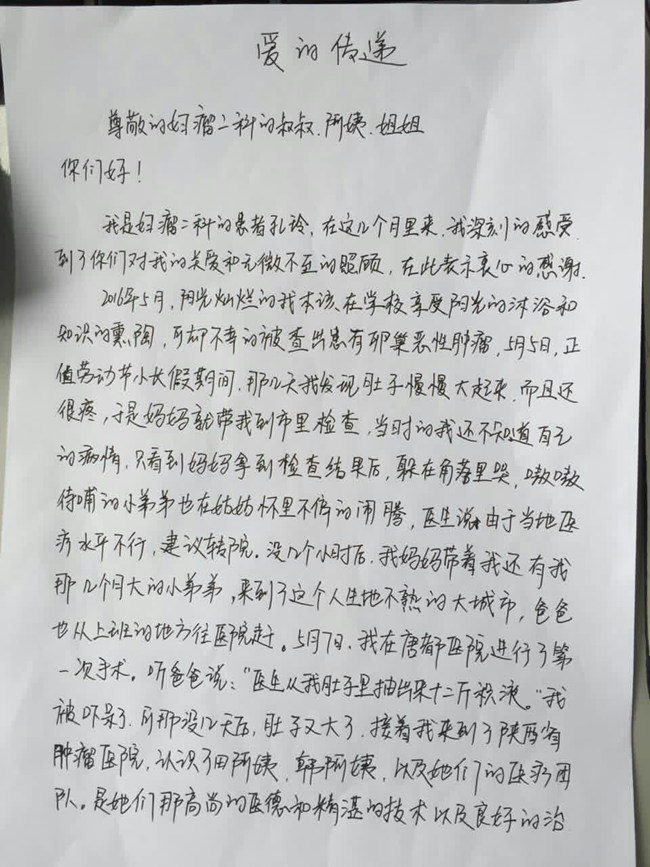 爱的传递
尊敬的妇瘤二科的叔叔.阿姨.姐姐
你们好！
我是妇瘤二科的患者孔玲，在这几个月里来.我深刻的感受
到了你们对我的关爱和无微不至的照顾，在此表示衷心的感谢.
2016年5月，阳光灿烂的我本该在学校享受阳光的沐浴和
知识的熏陶，可却不幸的被查出患有卵巢恶性肿瘤，5月5日，正
值劳动节小长假期间.那几天我发现肚子慢慢大起来.而且还
很疼，于是妈妈就带我到市里检查，当时的我还不知道自己
的病情，只看到妈妈拿到检查结果后，躲在角落里哭，嗷嗷
待哺的小弟弟也在姑姑怀里不停的闹腾，医生说由于当地医
疗水平不行，建议转院.没几个小时后.我妈妈带着我还有我
那几个月大的小弟弟，来到了这个人生地不熟的大城市，爸爸
也从上班的地方往医院赶。5月7日.我在唐都医院进行了第
一次手术。听爸爸说："医生从我肚子里抽出来十二斤积液。"我
被吓呆了.可那没几天后，肚子又大了.接着我来到了陕西省
肿瘤医院，认识了田阿姨，韩阿姨，以及她们的医疗团
队。是她们那高尚的医德和精湛的技术以及良好的治